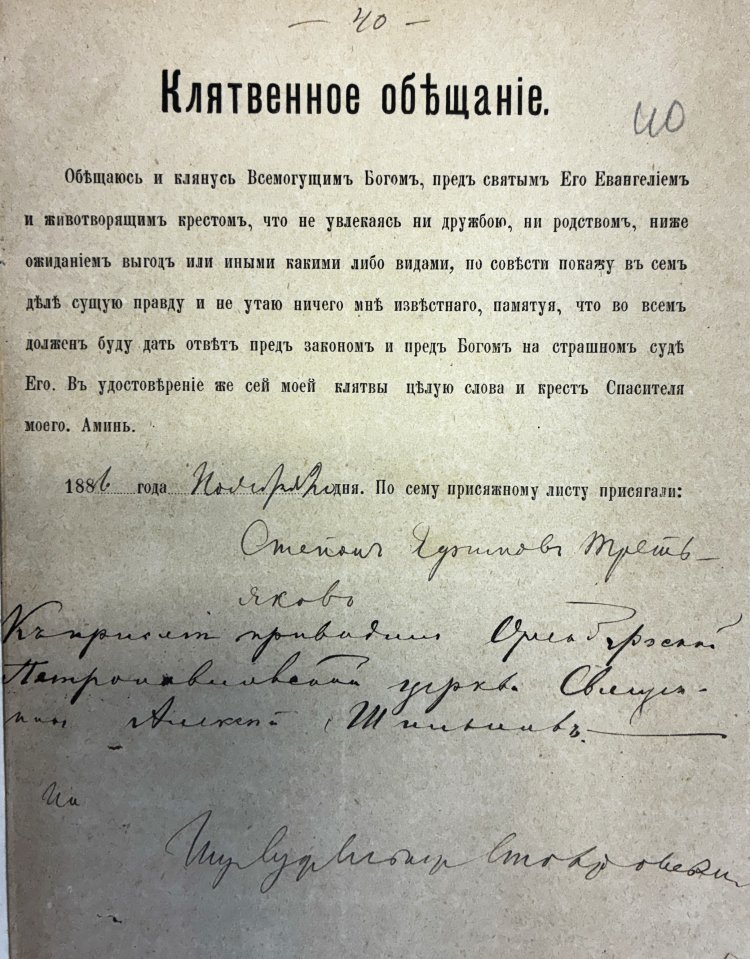 — 40 —
Клятвенное обѣщаніе.
40
Обѣщаюсь и клянусь Всемогущимъ Богомъ, предъ святымъ Его Евангеліемъ
и животворящимъ крестомъ, что не увлекаясь ни дружбою, ни родствомъ, ниже
ожиданіемъ выгодъ или иными какими либо видами, по совѣсти покажу въ семъ
дѣлѣ сущую правду и не утаю ничего мнѣ извѣстнаго, памятуя, что во всемъ
долженъ буду дать отвѣтъ предъ закономъ и предъ Богомъ на страшномъ судѣ
Его. Въ удостовѣреніе же сей моей клятвы цѣлую слова и крестъ Спасителя
моего. Аминь.
1886 года Ноября 20 дня. По сему присяжному листу присягали:
Степанъ Ефимовъ Треть-
яковъ
Къ присягѣ приводилъ Оренбургской
Петропавловской церкви Священ-
никъ Алексей